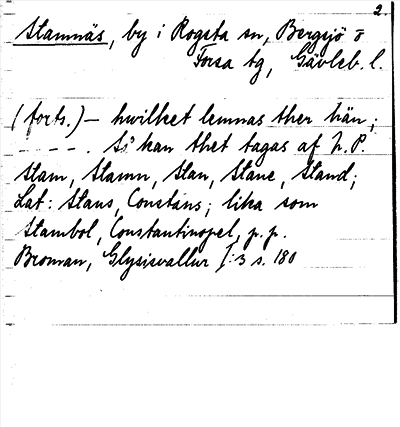 2.
Stamnäs, by i Rogsta sn, Bergsjö o
Forsa tg, Gävleb. l.
(forts.) – hwilket lemnas ther hän;
- - - - . Så kan thet tagas af N. P.
Stam, Stamn, Stan, Stane, Stand;
Lat: Stans, Constans; lika som
Stambol, Constantinopel, p. p.
Broman, Glysisvallur I: 3 s. 180